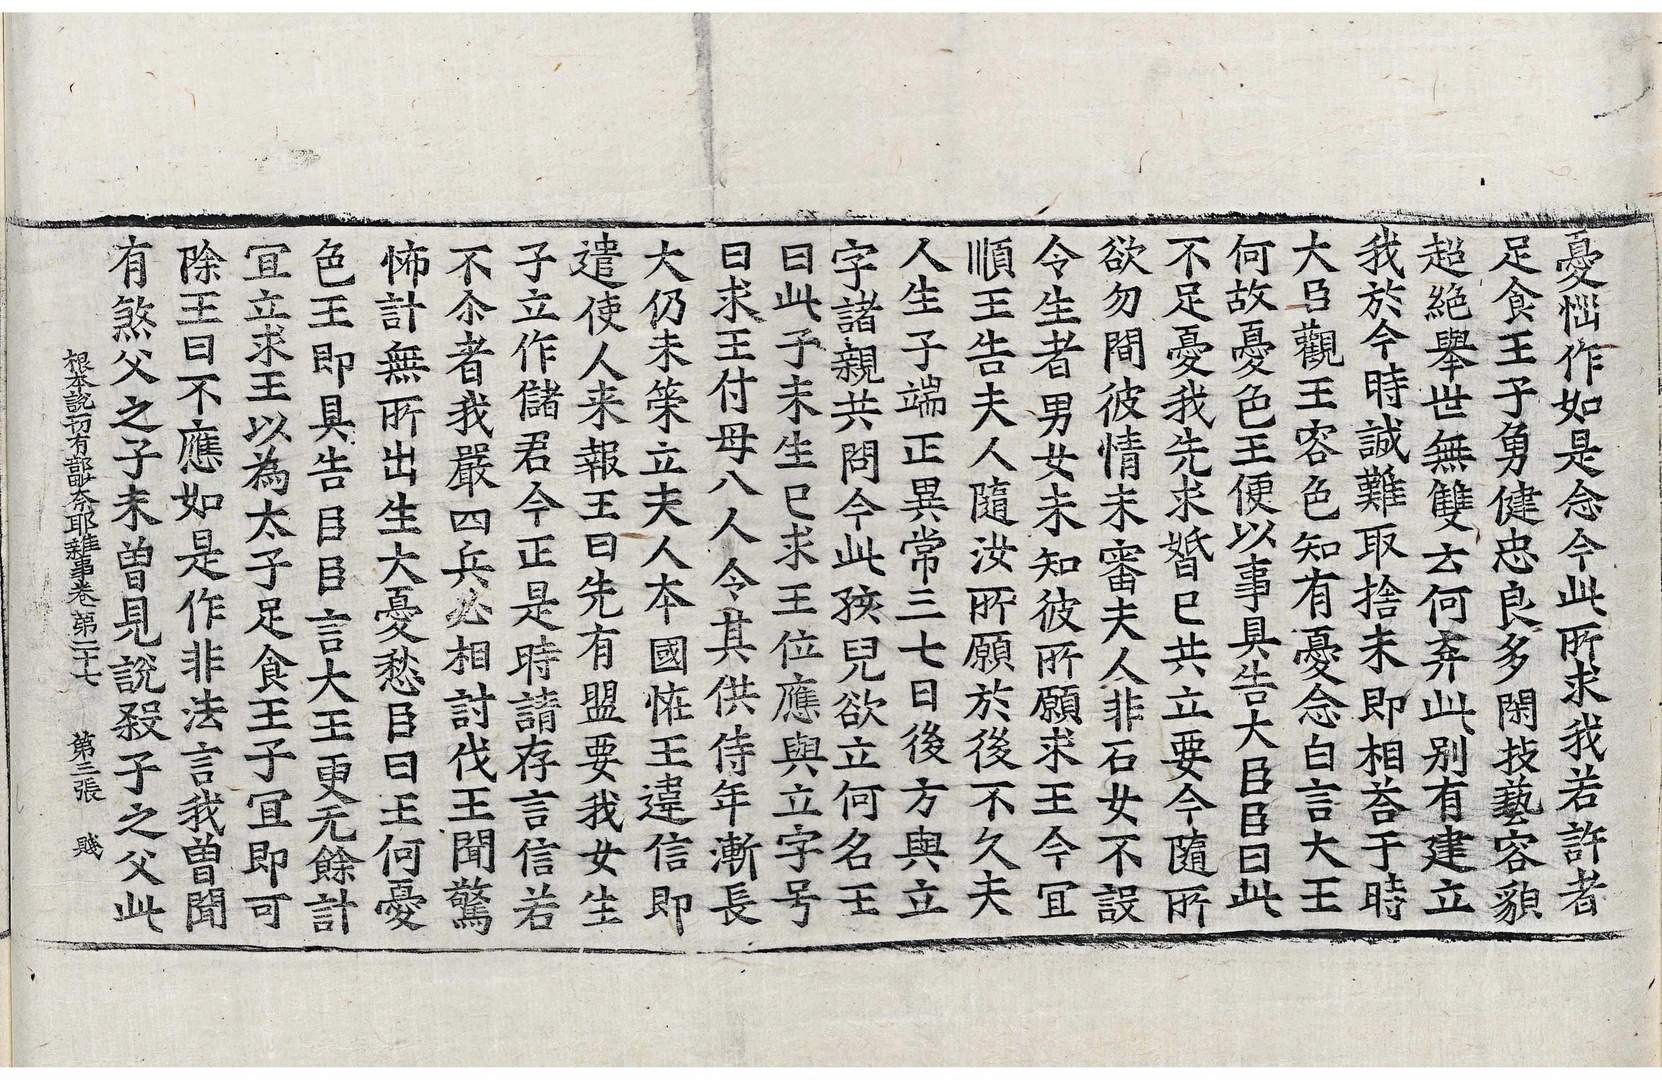 憂惱作如是念今此所求我若許者
足食王子勇健忠良多閑技藝容貌
超絶舉世無雙云何弃此別有建立
我於今時誠難取捨未即相荅于時
大臣觀王容色知有憂念白言大王
何故憂色王便以事具告大臣臣曰此
不足憂我先求婚已共立要今隨所
欲勿間彼情未審夫人非石女不設
令生者男女未知彼所願求王今冝
順王告夫人隨汝所願於後不久夫
人生子端正異常三七日後方與立
字諸親共問今此孩兒欲立何名王
曰此子未生已求王位應與立字号
曰求王付母八人令其供侍年漸長
大仍未策立夫人本國恠王違信即
遣使人来報王曰先有盟要我女生
子立作儲君今正是時請存言信若
不尒者我嚴四兵必相討伐王聞驚
怖計無所出生大憂愁臣曰王何憂
色王即具告臣臣言大王更无餘計
冝立求王以為太子足食王子冝即可
除王曰不應如是作非法言我曽聞
有煞父之子未曽見說殺子之父此
根本說一切有部毗奈耶雜事卷第二十七 第三張 賤